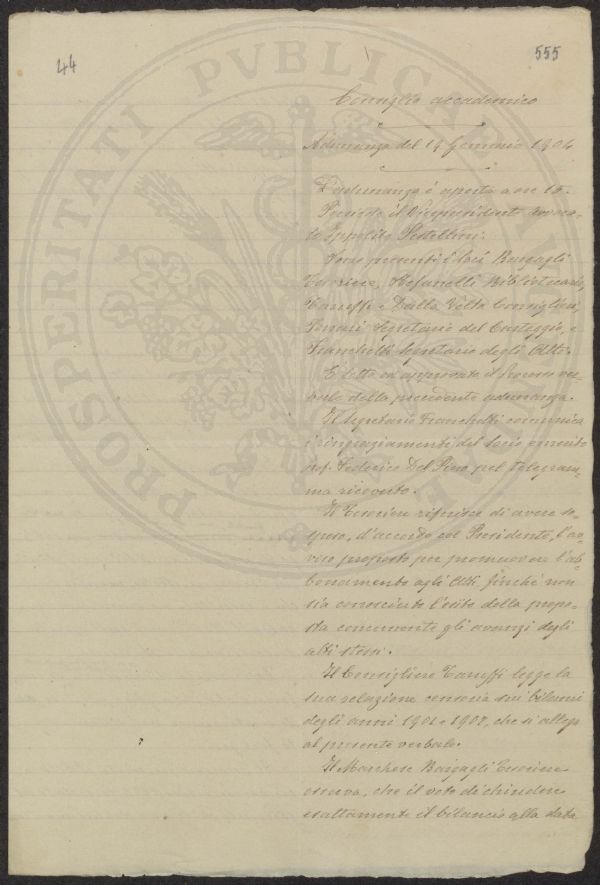 44
555
PROSPERITATI PVBLICAE AVGENDAE
Consiglio accademico
Adunanza del 14 Gennaio 1904
L'adunanza è aperta a ore 15.
Presiede il Vicepresidente avvoca-
to Ippolito Pestellini.
Sono presenti i soci Bargagli
Tesoriere, Stefanelli Bibliotecario,
Taruffi e Dalla Volta Consiglieri,
Segretario del Carteggio, e
Franchetti Segretario degli Atti.
È letto ed approvato il processo ver-
bale della precedente adunanza.
Il Segretario Franchetti comunica
i ringraziamenti del socio emerito
prof. Federico Del Pino pel telegram-
ma ricevuto.
Il Tesoriere riferisce di avere so-
speso, d'accordo col Presidente, l'av-
viso proposto per promuovere l'ab-
bonamento agli Atti finchè non
sia conosciuto l'esito della propo-
sta concernente gli avanzi degli
atti stessi.
Il Consigliere Taruffi legge la
sua relazione censoria sui bilanci
degli anni 1901 e 1902, che si allega
al presente verbale.
Il Marchese Bargagli Tesoriere
osserva, che il voto di chiudere
esattamente il bilancio alla data